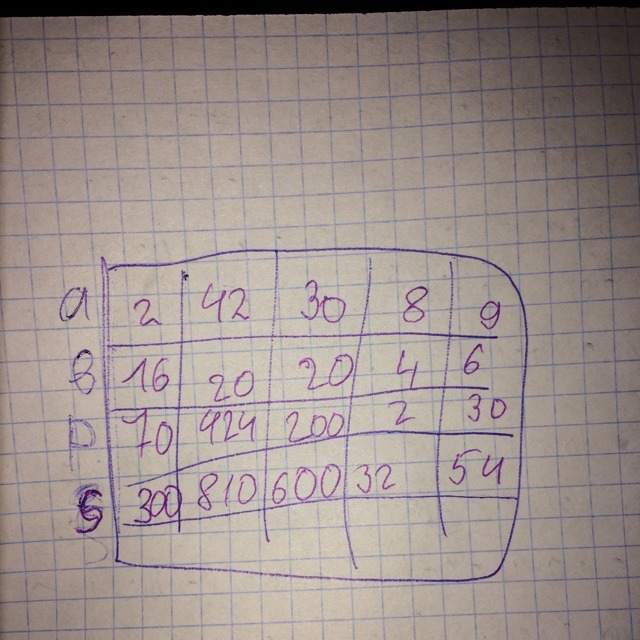 a 2 42 30 8 9
B 16 20 20 4 6
P 70 424 200 2 30
S 300 810 600 32 54